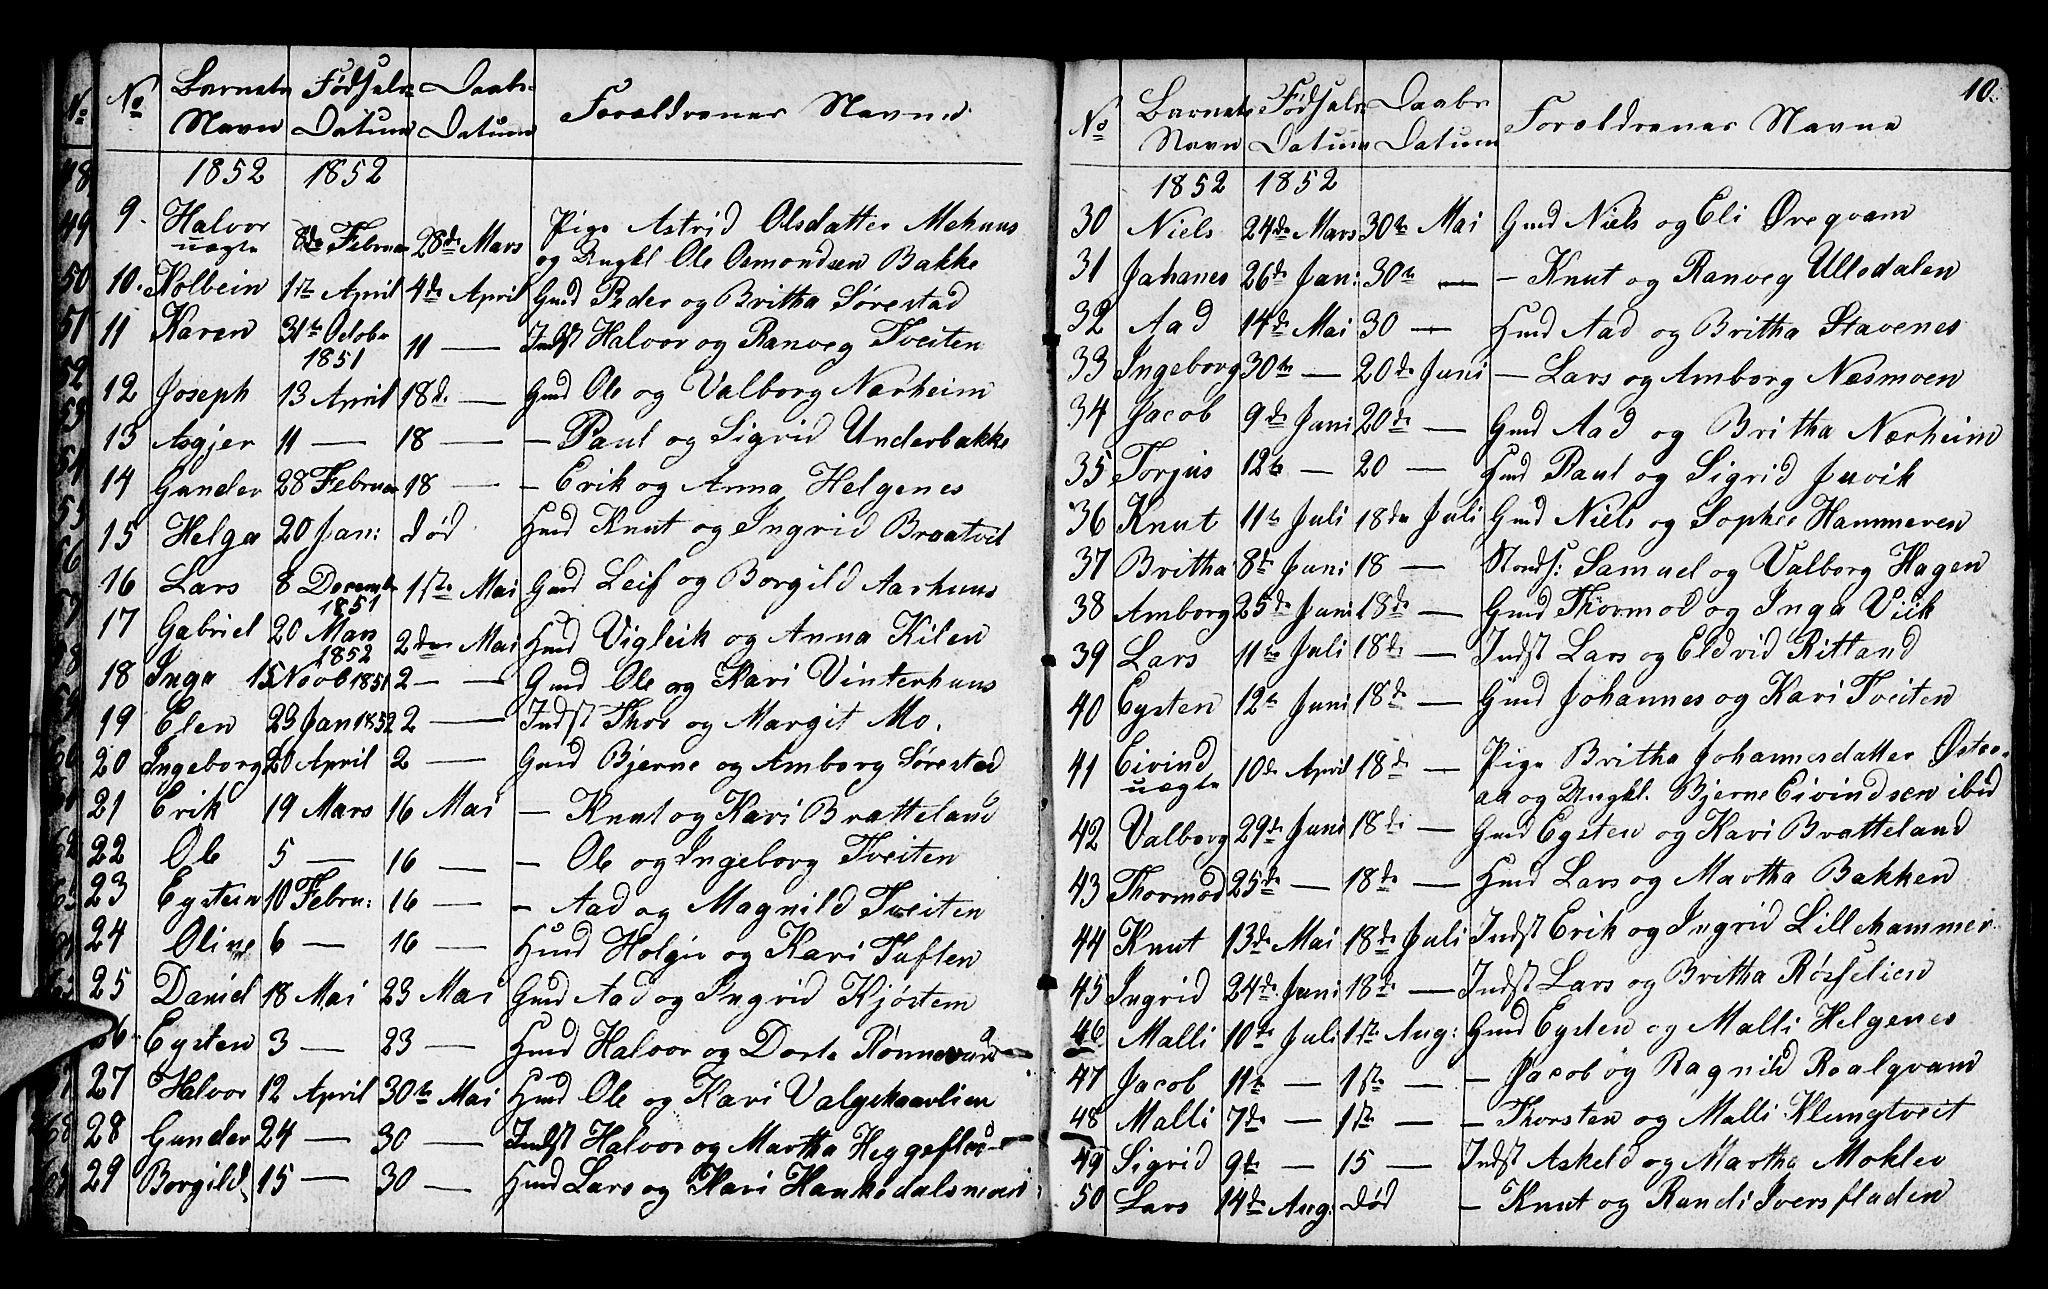 No Barnets Navn Fødsels Datum Daabs Datum Forældrenes Navne
1852 1852
9. Halvor uægte 8de Februar 28de Mars Pige Astrid Olsdatter Mehuus
og Ungkl Ole Osmondsen Bakke
10. Kolbein 1ste April 4de April Gmd Peder og Britha Sørestad
11 Karen 31te Octobr 1851 11 — Indst Halvor og Ranveg Tveiten
12 Joseph 13 April 18de — Gmd Ole og Valborg Nærheim
13 Asgjer 11 — 18 — — Paul og Sigrid Underbakke
14 Gunder 28 Februar 18 — — Erik og Anna Helgenes
15 Helga 20 Jan: død Hmd Knut og Ingrid Braatvit
16 Lars 8 Decembr 1851 1ste Mai Gmd Leif og Borgild Aarhuus
17 Gabriel 20 Mars 1852 2den Mai Hmd Vigleik og Anna Kilen
18 Inga 15 Novb 1851 2 — — Gmd Ole og Kari Vinterhuus
19 Elen 23 Jan 1852 2 — Indst Thor og Margit Mo.
20 Ingeborg 20 April 2 — Gmd Bjerne og Amborg Sørestad
21 Erik 19 Mars 16 Mai — Knut og Kari Bratteland
22 Ole 5 — 16 — — Ole og Ingeborg Tveiten
23 Eystein 10 Febru: 16 — — Aad og Magnild Tveiten
24 Oline 6 — 16 — Hmd Holgir og Kari Tuften
25 Daniel 18 Mai 23 Mai Gmd Aad og Ingrid Kjøstem
26 Eysten 3 — 23 — Hmd Halvor og Dorte Rønnevand
27 Halvor 12 April 30te Mai Hmd Ole og Kari Valgekaavlien
28 Gunder 24 — 30 — Indst Halvor og Martha Heggeflad
29 Borgild 15 — 30 — Hmd Lars og Kari Haukedalsmoen
10.
No Barnets Navn Fødsels Datum Daabs Datum Forældrenes Navne
1852 1852
30 Niels 24de Mars 30te Mai Gmd Niels og Eli Øreqvam
31 Jahanes 26de Jan: 30te — — Knut og Ranveg Ullsdalen
32 Aad 14de Mai 30 — Hmd Aad og Britha Stavenes
33 Ingeborg 30te — 20de Juni — Lars og Amborg Næsmoen
34 Jacob 9de Juni 20de — Gmd Aad og Britha Nærheim
35 Torjus 12te — 20 — Hmd Paul og Sigrid Juvik
36 Knut 11te Juli 18de Juli Gmd Niels og Sophie Hammeren
37 Britha 8de Juni 18 — Samuel og Valborg Hagen
38 Amborg 25de Juni 18de — Gmd Thormod og Inga Viik
39 Lars 11te Juli 18de — Indst Lars og Eldrid Ritland
40 Eysten 12te Juni 18de — Gmd Johannes og Kari Tveiten
41 Eivind uægte 10de April 18de — Pige Britha Johannesdatter Østra-
aa og Ungkl. Bjerne Eivindsen ibid
42 Valborg 29de Juni 18de — Gmd Eysten og Kari Bratteland
43 Thormod 25de — 18de — Hmd Lars og Martha Bakken
44 Knut 13de Mai 18de Juli Indst Erik og Ingrid Lillehammer
45 Ingrid 24de Juni 18de — Indst Lars og Britha Røsselien
46 Malli 10de Juli 1ste Aug: Gmd Eysten og Malli Helgenes
47 Jacob 11te — 1ste — — Jacob og Ragnild Roalqvam
48 Malli 7de — 1ste — — Thorsten og Malli Klungtveit
49 Sigrid 9de — 15 — Indst Askeld og Martha Moklev
50 Lars 14de Aug: død — Knut og Randi Iversfladen